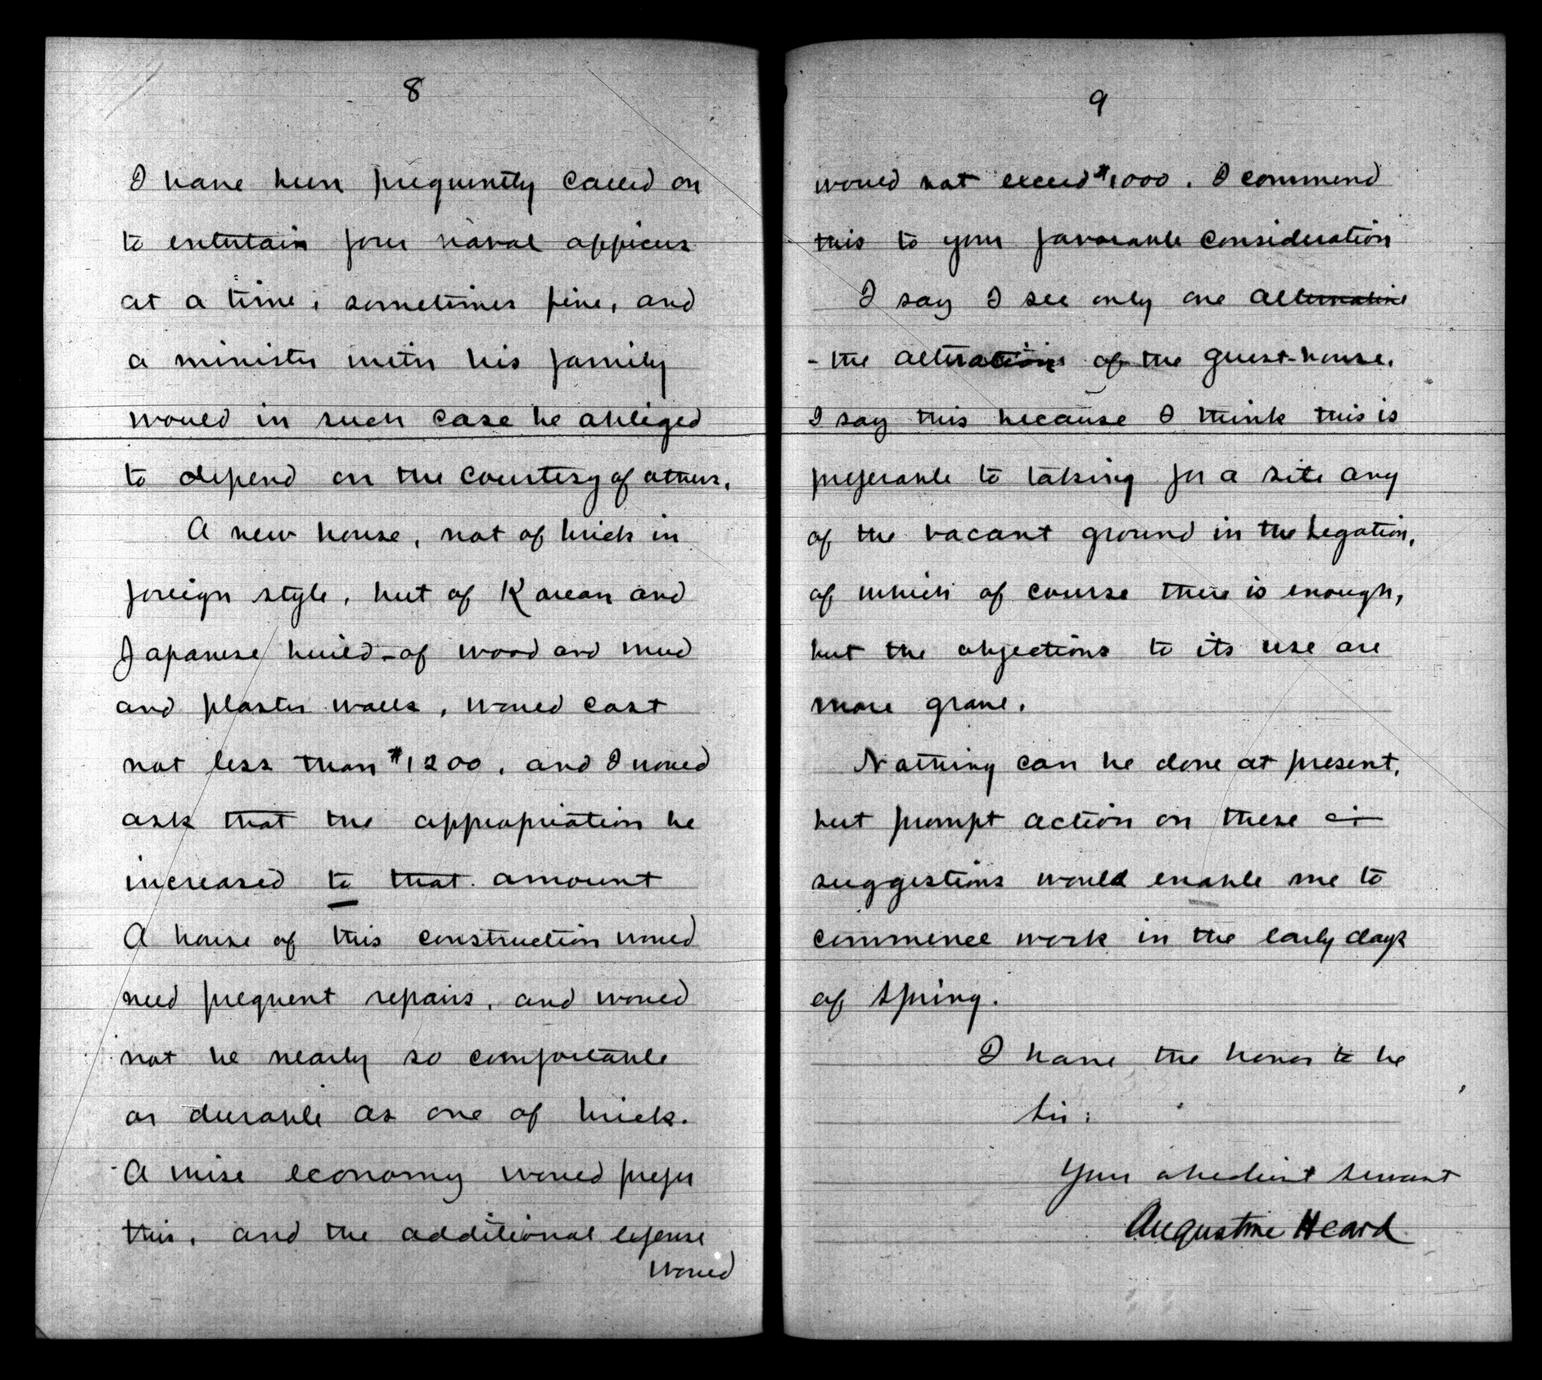 8
I have been frequently called on
to entertain four naval officers
at a time; sometimes five, and
a minister with his family
would in such case be obliged
to depend on the courtesy of others.
A new house, not of brick in
foreign style, but of Korean and
Japanese build - of wood and mud
and plaster walls, would cost
not less than $1200, and I would
ask that the appropriation be
increased to that amount
A house of this construction would
need frequent repairs, and would
not be nearly so comfortable
or durable as one of brick.
A wise economy would prefer
this, and the additional expense
would
9
would not exceed $1000. I commend
this to your favorable consideration
I say I see only one alternative
- the alterations of the guest-house.
I say this because I think this is
preferable to taking for a site any
of the vacant ground in the Legation,
of which of course there is enough,
but the objections to its use are
more grave.
Nothing can be done at present,
but prompt action on these
suggestions would enable me to
commence work in the early days
of Spring.
I have the honor to be
Sir:
Your obedient servant
Augustine Heard